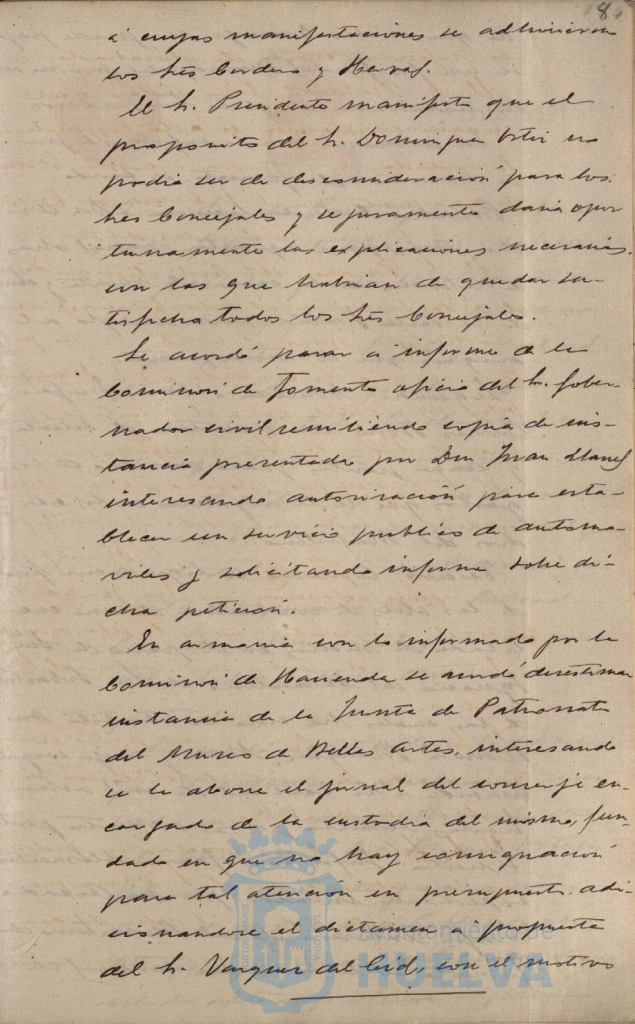 8
á cuyas manifestaciones se adhirieron
los Sres Cordero y Hervas.
El Sr. Presidente manifestó que el
proposito del Sr. Dominguez Ortiz no
podia ser de desconsideración para los
Sres Concejales y seguramente daria opor
tunamente las explicaciones necesarias,
con las que habrian de quedar sa-
tisfechos todos los Sres Concejales.
Se acordó pasar á informe de la
Comision de Fomento oficio del Sr. Gober-
nador civil remitiendo copia de ins-
tancia presentada por Don Juan
interesando autorización para esta-
blecer un servicio publico de automo-
viles y solicitando informe sobre di-
cha petición.
En armonia con lo informado por la
Comision de Hacienda se acordó desestimar
instancia de la Junta de Patronato
del Museo de Bellas Artes, interesando
se le abone el jornal del conserje en-
cargado de la custodia del mismo, fun-
dado en que no hay consignación
para tal atención en presupuesto, adi-
cionandose el dictamen á propuesta
del Sr. Vazquez del Cid, con el motivo
Ayuntamiento de
HUELVA